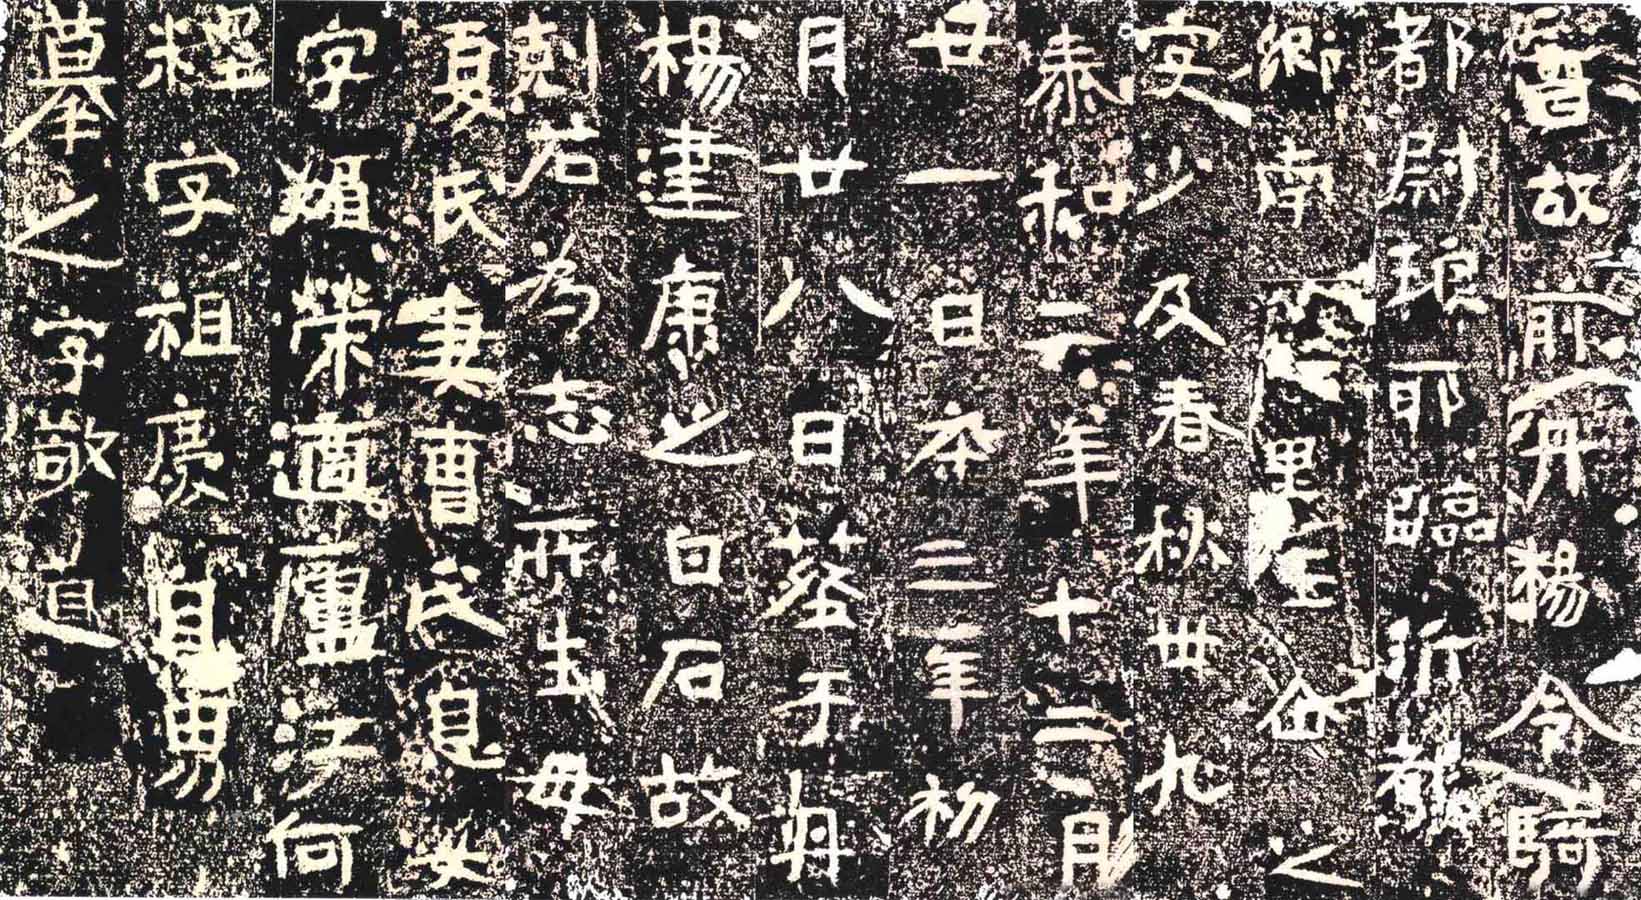 晉故前丹楊令騎
都尉琅耶臨沂都
鄉南里王仚之
字少及春秋卅九
泰和二年十二月
廿一日卒三年初
月廿八日葬于丹
楊建康之白石故
刻石為志所生母
夏氏妻曹氏息女
字媚榮適廬江何
粹字祖慶息男
摹之字敬道